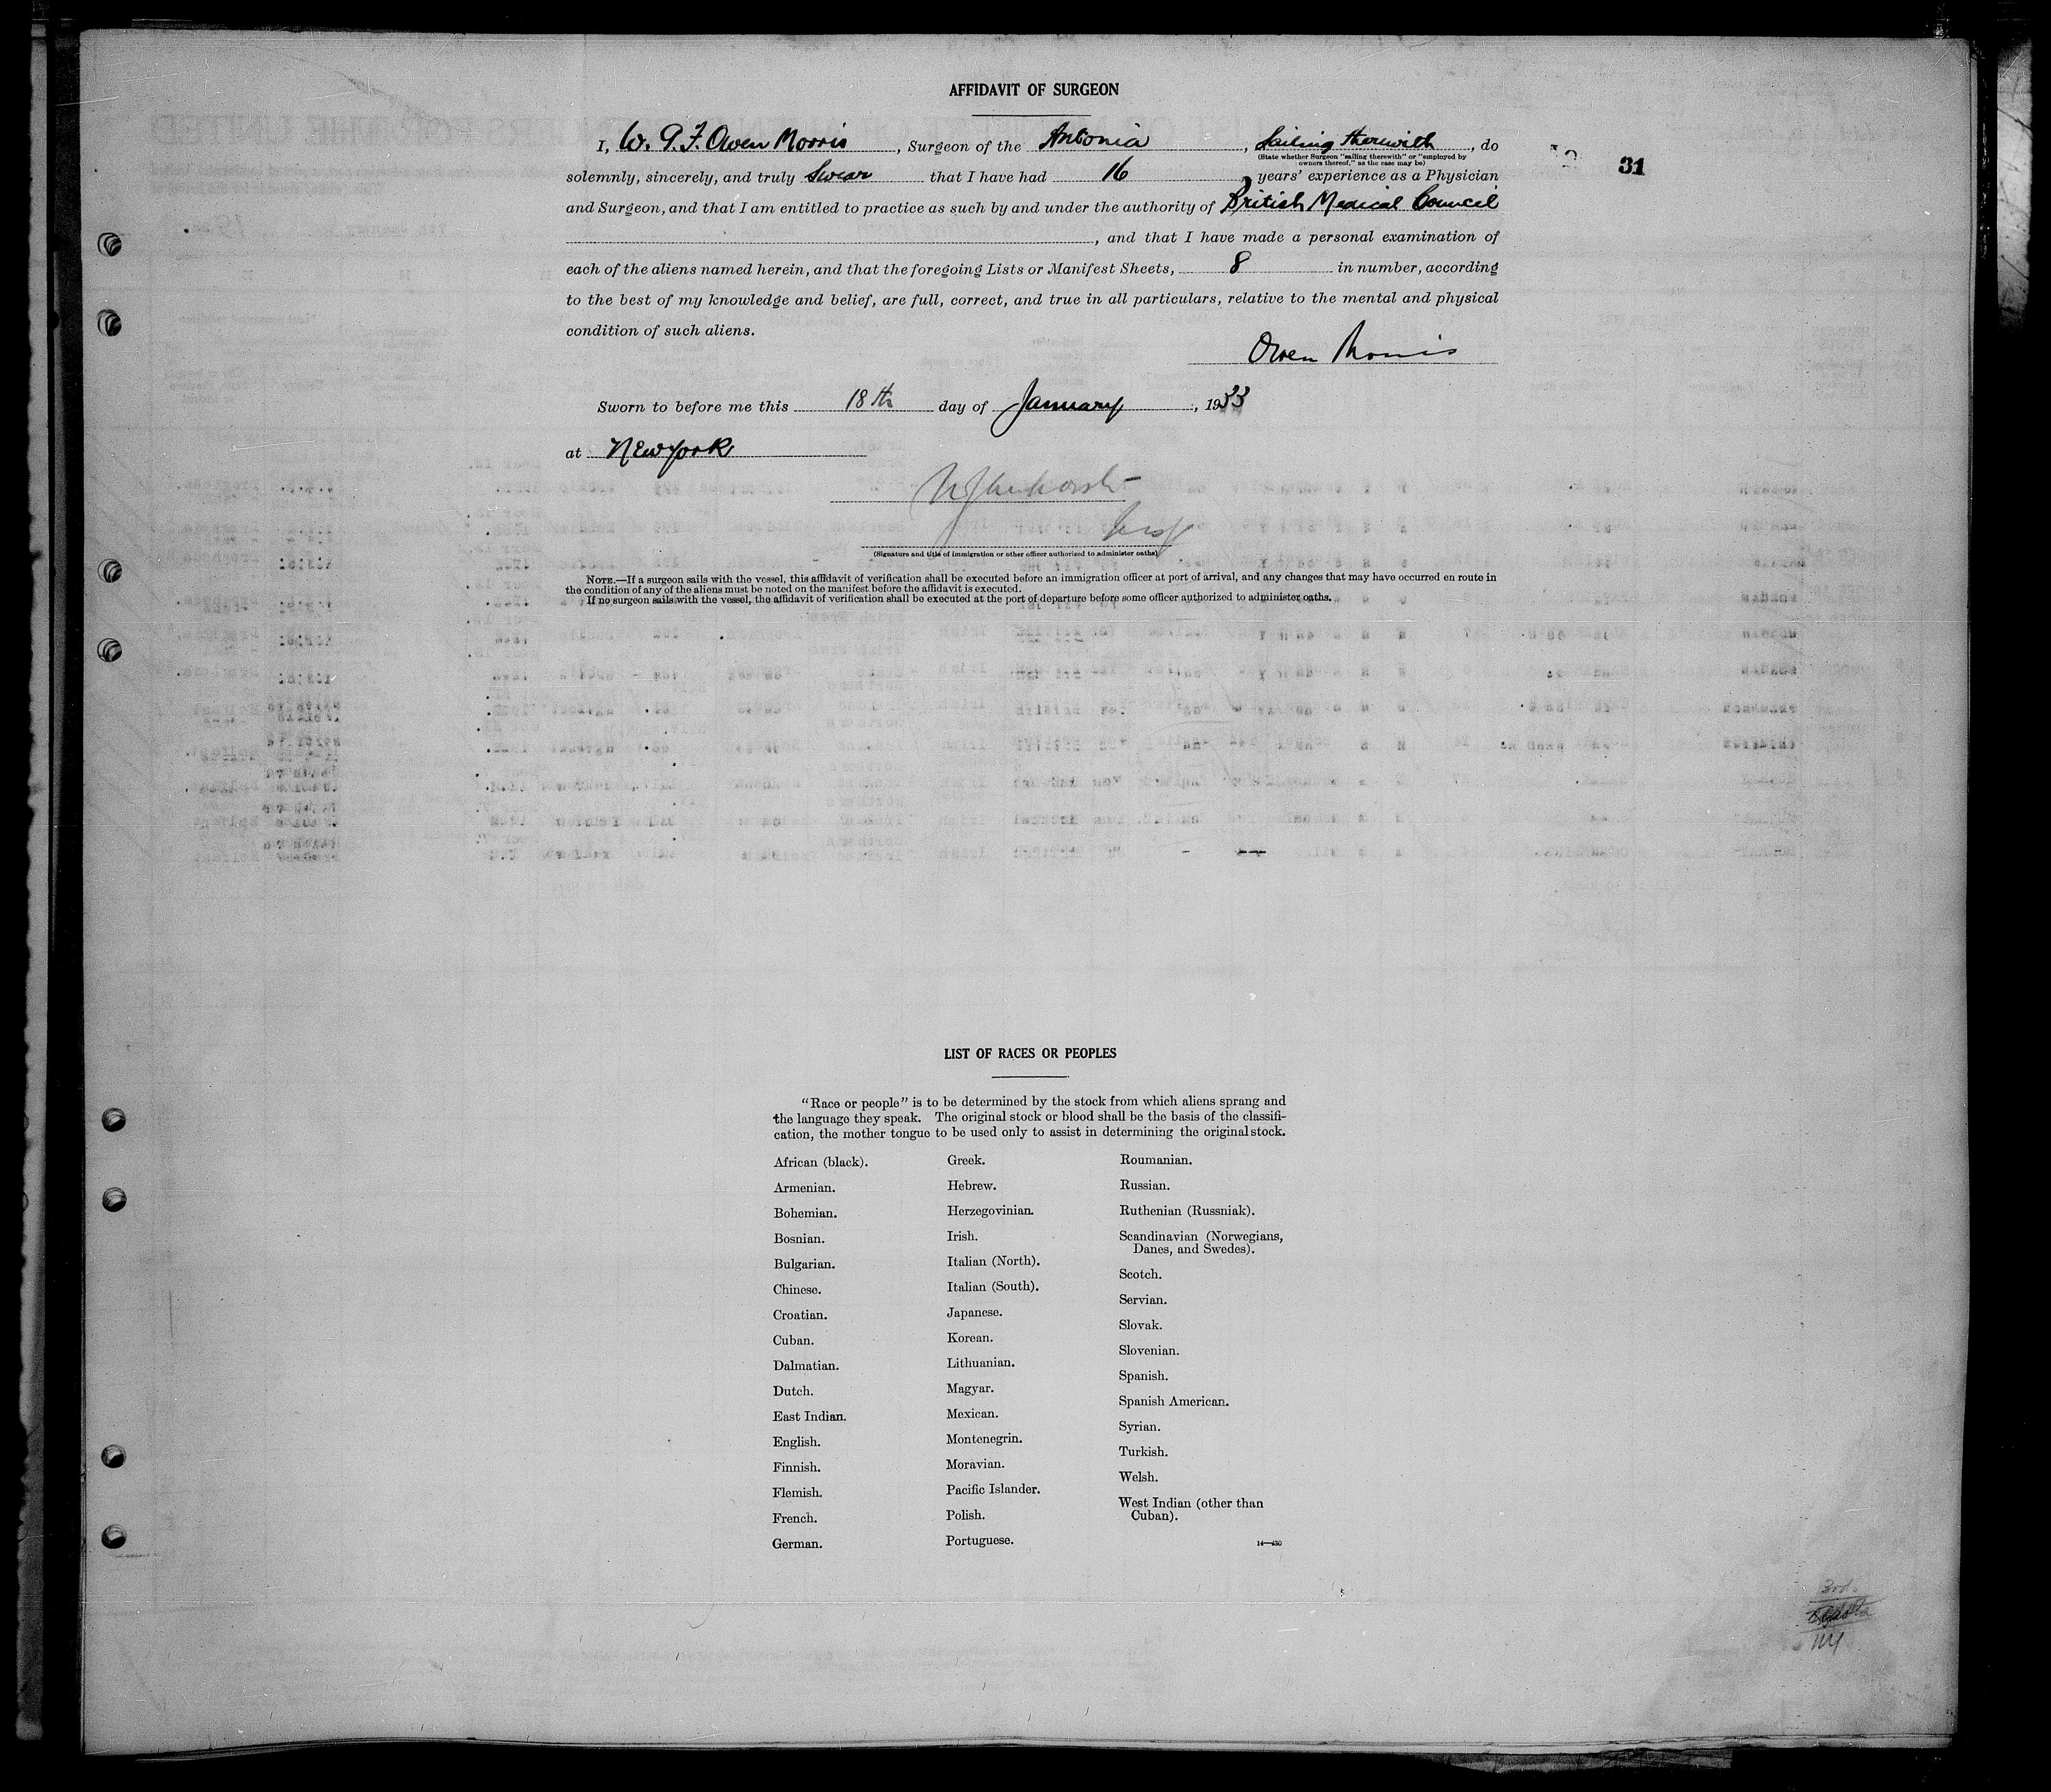 AFFIDAVIT OF SURGEON
I, W. G. F. Owen Morris, Surgeon of the Antonia, Sailing therewith, do
(State whether Surgeon "sailing therewith" or "employed by
owners thereof," as the case may be)
31
solemnly, sincerely, and truly Swear that I have had 16 years' experience as a Physician
and Surgeon, and that I am entitled to practice as such by and under the authority of British Medical Council
, and that I have made a personal examination of
each of the aliens named herein, and that the foregoing Lists or Manifest Sheets, 8 in number, according
to the best of my knowledge and belief, are full, correct, and true in all particulars, relative to the mental and physical
condition of such aliens.
Owen Morris
Sworn to before me this 18th day of January, 1933
at New York
(Signature and title of immigration or other officer authorized to administer oaths)
NOTE.—If a surgeon sails with the vessel, this affidavit of verification shall be executed before an immigration officer at port of arrival, and any changes that may have occurred en route in
the condition of any of the aliens must be noted on the manifest before the affidavit is executed.
If no surgeon sails with the vessel, the affidavit of verification shall be executed at the port of departure before some officer authorized to administer oaths.
LIST OF RACES OR PEOPLES
"Race or people" is to be determined by the stock from which aliens sprang and
the language they speak. The original stock or blood shall be the basis of the classifi-
cation, the mother tongue to be used only to assist in determining the original stock.
African (black).
Armenian.
Bohemian.
Bosnian.
Bulgarian.
Chinese.
Croatian.
Cuban.
Dalmatian.
Dutch.
East Indian.
English.
Finnish.
Flemish.
French.
German.
Greek.
Hebrew.
Herzegovinian.
Irish.
Italian (North).
Italian (South).
Japanese.
Korean.
Lithuanian.
Magyar.
Mexican.
Montenegrin.
Moravian.
Pacific Islander.
Polish.
Portuguese.
Roumanian.
Russian.
Ruthenian (Russniak).
Scandinavian (Norwegians,
Danes, and Swedes).
Scotch.
Servian.
Slovak.
Slovenian.
Spanish.
Spanish American.
Syrian.
Turkish.
Welsh.
West Indian (other than
Cuban).
14—430
3rd
NY